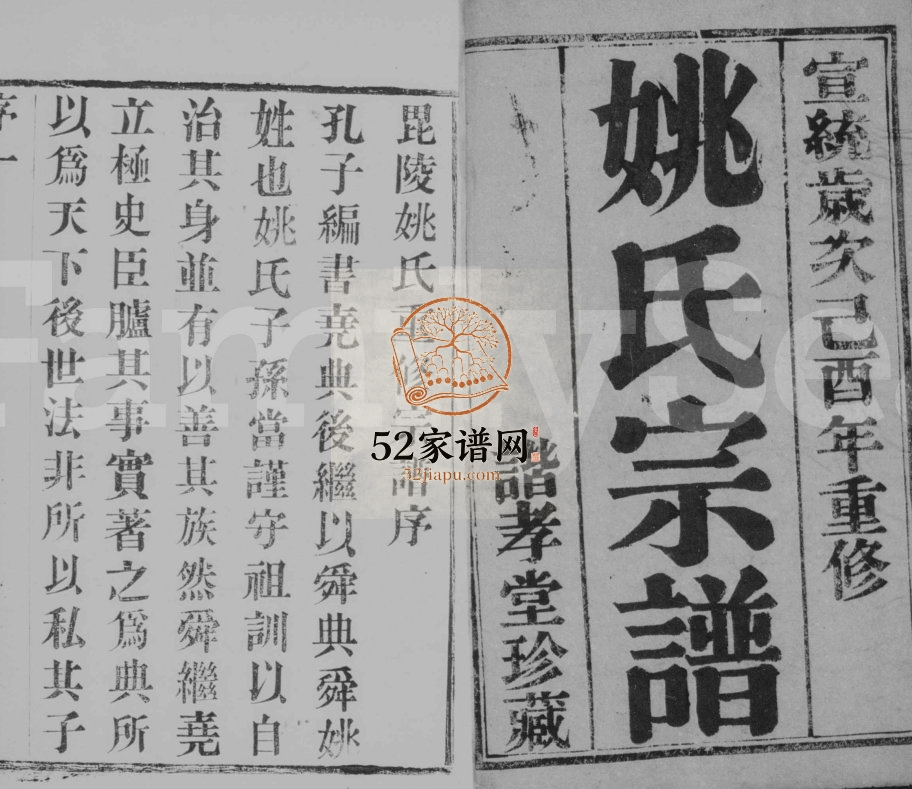 宣統歲次己酉年重修
姚氏宗譜
諧孝堂珍藏
毘陵姚氏重修宗譜序
孔子編書堯典後繼以舜典舜姚
姓也姚氏子孫當謹守祖訓以自
治其身並有以善其族然舜繼堯
立極史臣臚其事實著之爲典所
以爲天下後世法非所以私其子
序一
52家谱网
52jiapu.com
FamilySe